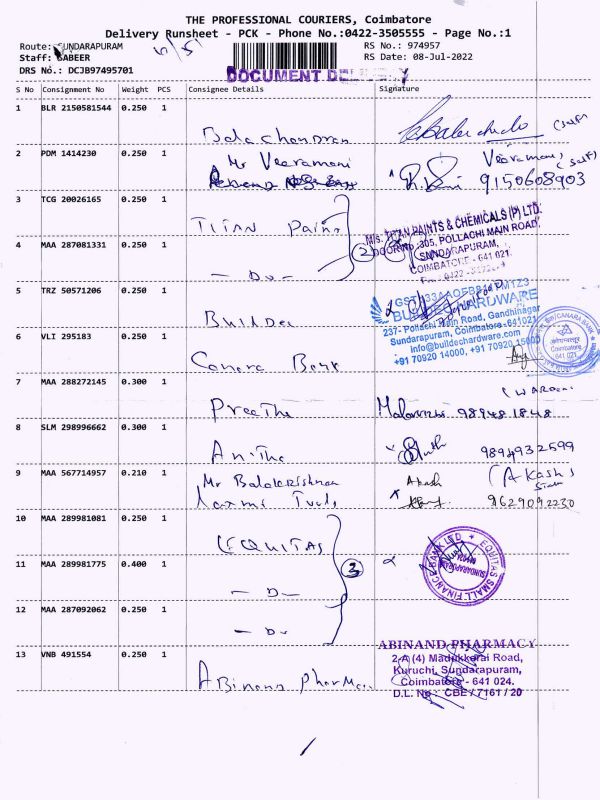 THE PROFESSIONAL COURIERS, Coimbatore
Delivery Runsheet - PCK - Phone No.:0422-3505555 - Page No.:1
Route: SUNDARAPURAM
Staff: SABEER
DRS No.: DCJB97495701
RS No.: 974957
RS Date: 08-Jul-2022
DOCUMENT DELIVERY
S No Consignment No Weight PCS Consignee Details Signature
1 BLR 2150581544 0.250 1
Balachandran (Self)
2 PDM 1414230 0.250 1
Mr Veeramani Veeramani (Self)
9150608903
3 TCG 20026165 0.250 1
TITAN Paints
M/s. TITAN PAINTS & CHEMICALS (P) LTD.
DOOR No: 305, POLLACHI MAIN ROAD,
SUNDARAPURAM,
COIMBATORE - 641 021.
4 MAA 287081331 0.250 1
2
- Do -
5 TRZ 50571206 0.250 1
Builder
BUILDEC HARDWARE
237- Pollachi Main Road, Gandhinagar
Sundarapuram, Coimbatore-641021
info@buildechardware.com
+91 70920 14000, +91 70920 15000
6 VLT 295183 0.250 1
Canara Bank
CANARA BANK
Coimbatore
641 021
7 MAA 288272145 0.300 1
Preetha
8 SLM 298996662 0.300 1
Anitha 9894932599
9 MAA 567714957 0.210 1
Mr Balakrishnan
Laxmi Tools
Akash (Akash)
9629092230
10 MAA 289981081 0.250 1
EQUITAS
11 MAA 289981775 0.400 1
3
- D -
EQUITAS SMALL FINANCE BANK LTD
SUNDARAPURAM
12 MAA 287092062 0.250 1
- D -
13 VNB 491554 0.250 1
Abinand Pharmacy
ABINAND PHARMACY
2-A (4) Madukkarai Road,
Kuruchi, Sundarapuram,
Coimbatore - 641 024.
D.L. No : CBE / 7161 / 20